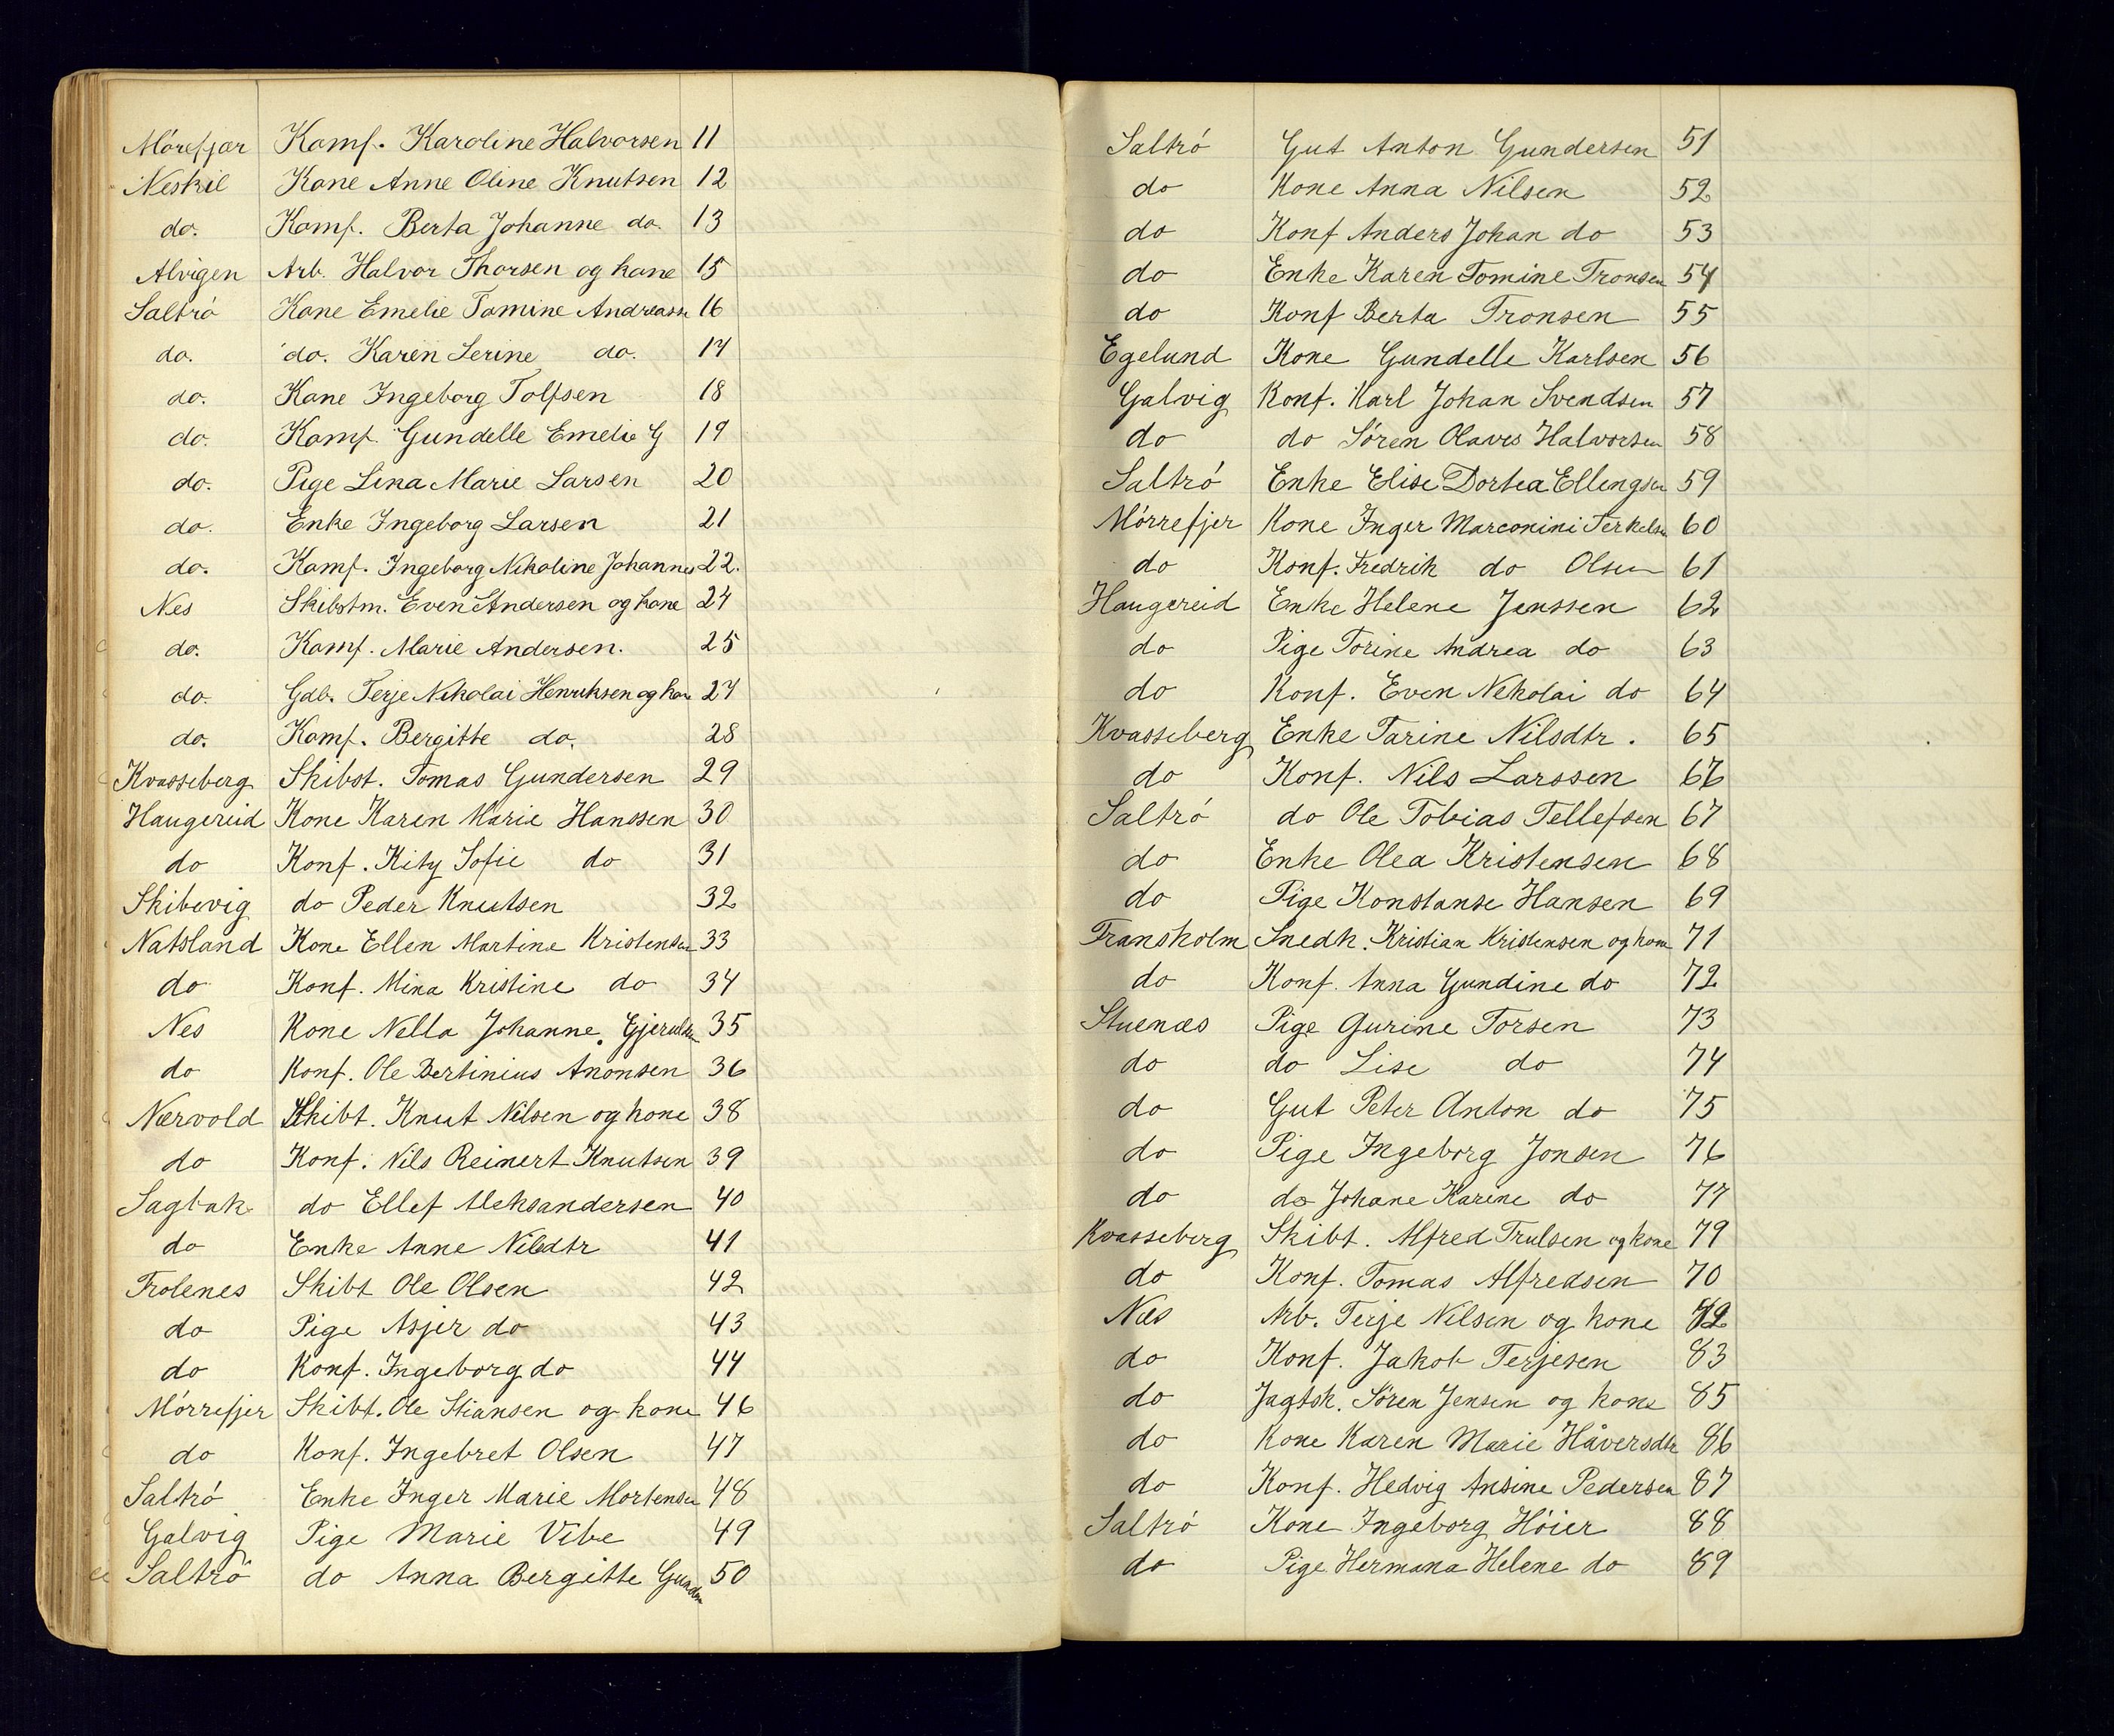 Mórefjær Komf. Karoline Halvorsen 11
Neskil Kone Anne Oline Knutsen 12
do. Komf. Berta Johanne do. 13
Alvigen Arb. Halvor Thorsen og kone 15
Saltró Kone Emelie Tomine Andreassn 16
do. do. Karen Serine do. 17
do. Kone Ingeborg Tolfsen 18
do. Komf. Gundelle Emelie G 19
do. Pige Lina Marie Larsen 20
do. Enke Ingeborg Larsen 21
do. Komf. Ingeborg Nikoline Johannes 22.
Nes Skibstm. Even Andersen og kone 24
do. Komf. Marie Andersen. 25
do. Gdb. Terje Nikolai Henriksen og kone 27
do. Komf. Bergitte do. 28
Kvasseberg Skibst. Tomas Gundersen 29
Haugereid Kone Karen Marie Hanssen 30
do Konf. Kity Sofie do 31
Skibevig do Peder Knutsen 32
Natsland Kone Ellen Martine Kristensen 33
do Konf. Mina Kristine do 34
Nes Kone Nella Johanne. Gjeruldsen 35
do Konf. Ole Bertinius Anonsen 36
Nærvold Skibt. Knut Nilsen og kone 38
do Konf. Nils Reinert Knutsen 39
Sagbak do Ellef Aleksandersen 40
do Enke Anne Nilsdtr 41
Frolenes Skibt Ole Olsen 42
do Pige Asjer do 43
do Konf. Ingeborg do 44
Mórrefjer Skibt. Ole Stiansen og kone 46
do Konf. Ingebret Olsen 47
Saltró Enke Inger Marie Mortensen 48
Galvig Pige Marie Vibe 49
Saltró do Anna Bergitte Gundersn 50
Saltró Gut Anton Gundersen 51
do Kone Anna Nilsen 52
do Konf Anders Johan do 53
do Enke Karen Tomine Tronsen 54
do Konf Berta Tronsen 55
Egelund Kone Gundelle Karlsen 56
Galvig Konf. Karl Johan Svendsen 57
do do Sóren Olaves Halvorsen 58
Saltró Enke Elise Dortea Ellingsen 59
Mórrefjer Kone Inger Marconini Terkelsen 60
do Konf. Fredrik do Olsen 61
Haugereid Enke Helene Jenssen 62
do Pige Torine Andrea do 63
do Konf. Even Nekolai do 64
Kvasseberg Enke Tarine Nilsdtr. 65
do Konf. Nils Larssen 66
Saltró do Ole Tobias Tellefsen 67
do Enke Olea Kristensen 68
do Pige Konstanse Hansen 69
Fransholm Snedk. Kristian Kristensen og kone 71
do Konf. Anna Gundine do 72
Stuenæs Pige Gurine Torsen 73
do do Lise do 74
do Gut Peter Anton do 75
do Pige Ingeborg Jonsen 76
do do Johane Karine do 77
Kvasseberg Skibt. Alfred Trulsen og kone 79
do Konf. Tomas Alfredsen 70
Næs Arb. Terje Nilsen og kone 82
do Konf. Jakob Terjesen 83
do Jagtsk. Sóren Jensen og kone 85
do Kone Karen Marie Håversdtr 86
do Konf. Hedvig Ansine Pedersen 87
Saltró Kone Ingeborg Hóier 88
do Pige Hermana Helene do 89